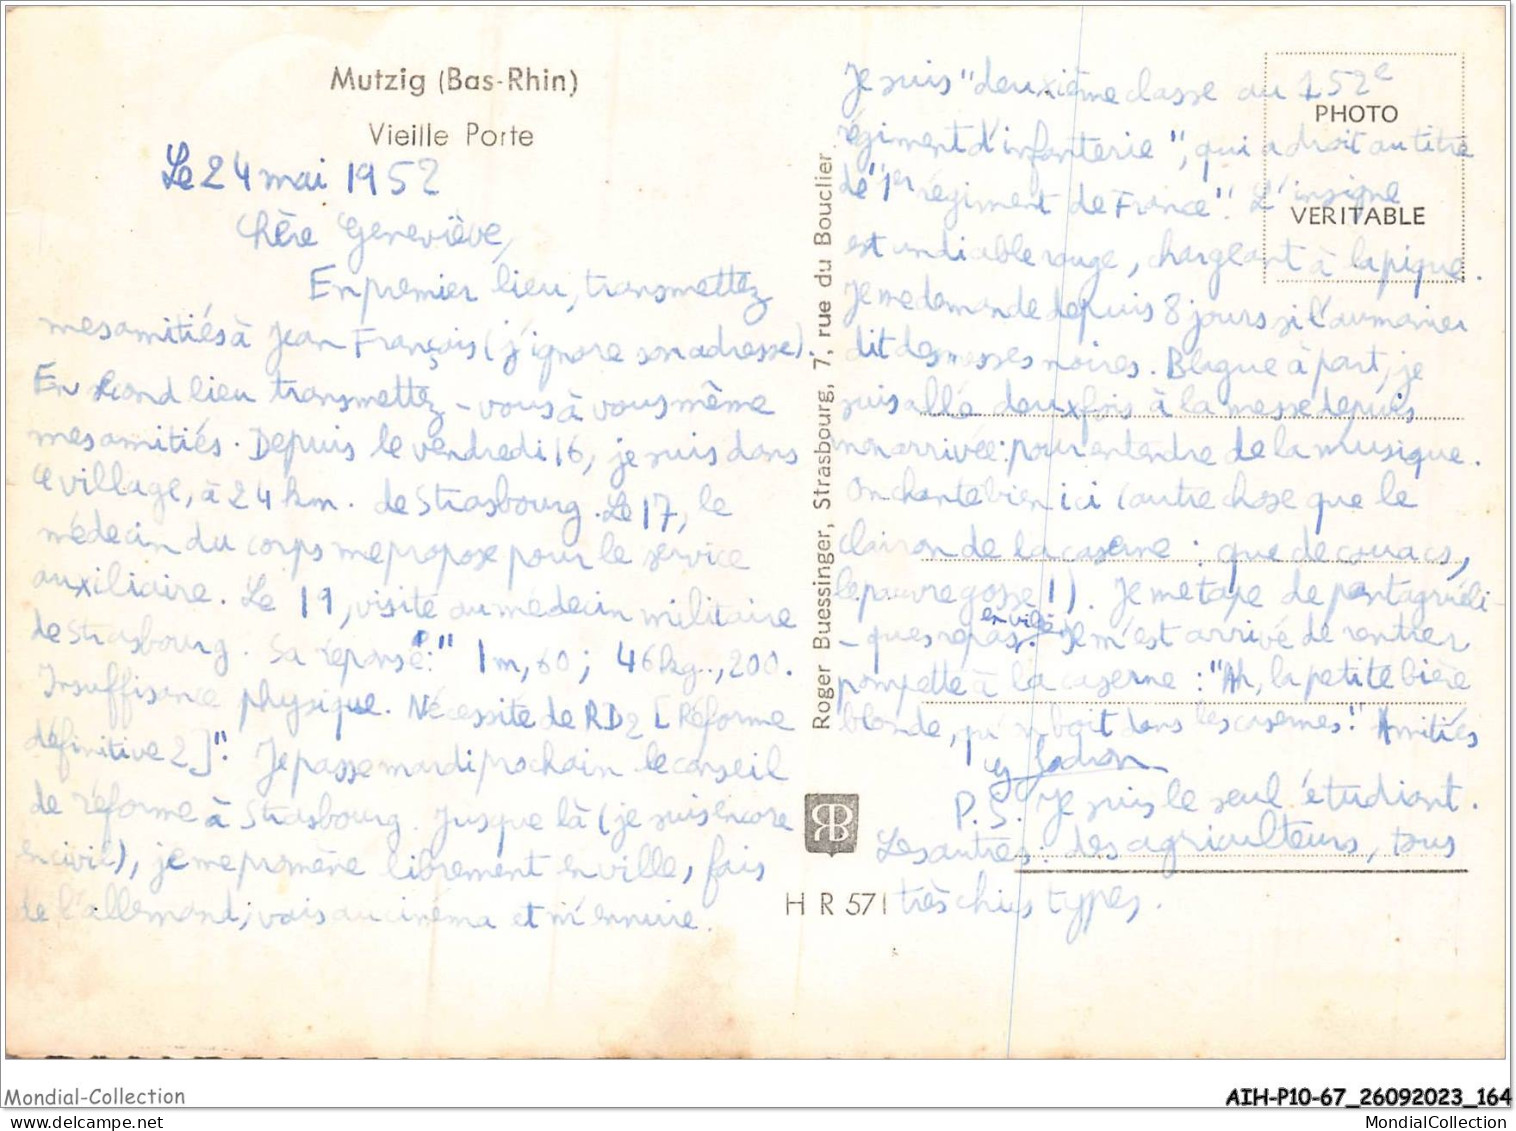 Mutzig (Bas-Rhin)
Vieille Porte
Le 24 mai 1952
Chère Geneviève,
En premier lieu, transmettez
mes amitiés à Jean François (j'ignore son adresse).
En second lieu transmettez-vous à vous même
mes amitiés. Depuis le vendredi 16, je suis dans
ce village, à 24 km. de Strasbourg. Le 17, le
médecin du corps me propose pour le service
auxiliaire. Le 19, visite au médecin militaire
de Strasbourg. Sa réponse : "1m,60 ; 46kg.,200.
Insuffisance physique. Nécessité de RD2 [Réforme
définitive 2]". Je passe mardi prochain le conseil
de réforme à Strasbourg. Jusque là (je suis encore
en civil), je me promène librement en ville, fais
de l'allemand, vais au cinéma et m'ennuie.
Roger Buessinger, Strasbourg, 7, rue du Bouclier
HR 571
PHOTO
VERITABLE
Je suis "deuxième classe au 152e
régiment d'infanterie", qui a droit au titre
de "1er régiment de France". L'insigne
est un diable rouge, chargeant à la pique.
Je me demande depuis 8 jours si l'aumonier
dit des messes noires. Blague à part, je
suis allé deux fois à la messe depuis
mon arrivée : pour entendre de la musique.
On chante bien ici (autre chose que le
clairon de la caserne : que de couacs,
le pauvre gosse !). Je me tape de pantagruéli-
-ques repas en ville. Il m'est arrivé de rentrer
pompette à la caserne : "Ah, la petite bière
blonde, qu'on boit dans les casernes." Amitiés
P.S. Je suis le seul étudiant.
Les autres : des agriculteurs, tous
très chics types.
Mondial-Collection
AIH-P10-67_26092023_164
mondial-collection.com
MondialCollection